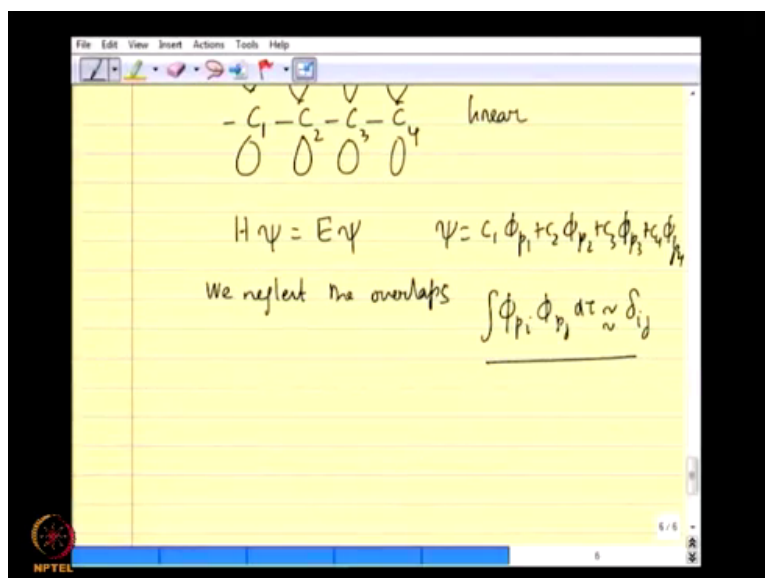 File Edit View Insert Actions Tools Help
- C₁ - C₂ - C₃ - C₄ linear
Hψ = Eψ ψ = c₁ϕₚ₁ + c₂ϕₚ₂ + c₃ϕₚ₃ + c₄ϕₚ₄
We neglect the overlaps ∫ϕₚᵢ ϕₚⱼ dτ ≈ δᵢⱼ
6/6
6
NPTEL